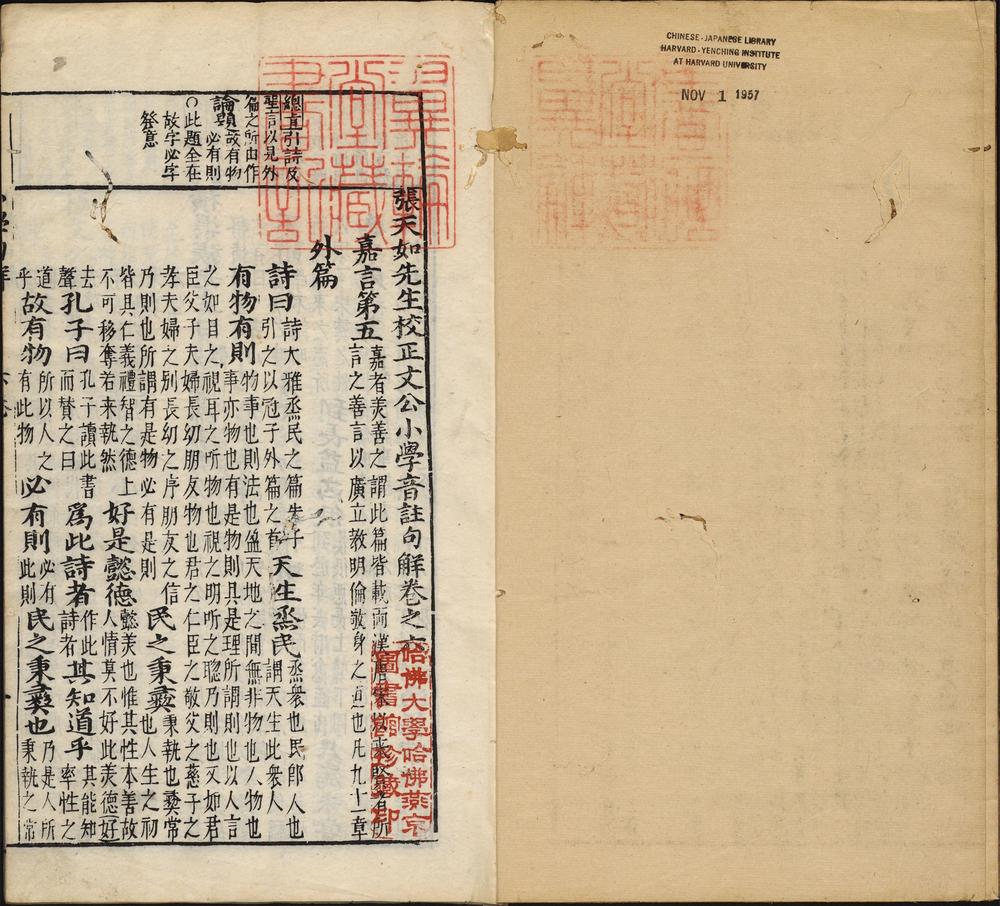 CHINESE-JAPANESE LIBRARY
HARVARD-YENCHING INSTITUTE
AT HARVARD UNIVERSITY
NOV 1 1957
總直引詩及
聖言以見外
篇之所由作
論題故有物
必有則
○此題全在
故字必字
發意
張天如先生校正文公小學音註句解卷之六
嘉言第五嘉者美善之謂此篇皆載兩漢賢者所
言之善言以廣立教明倫敬身之道也凡九十一章
外篇
詩曰詩大雅烝民之篇朱子引之以冠于外篇之首天生烝民烝衆也民即人也謂天生此衆人
有物有則物事也則法也盈天地之間無非物也人物也事亦物也有是物則具是理所謂則也以人言
之如目之視耳之听物也視之明听之聰乃則也又如君
臣父子夫婦長幼朋友物也君之仁臣之敬父之慈子之
孝夫婦之别長幼之序朋友之信乃則也所謂有是物必有是則民之秉彝秉執也彝常也人生之初
皆具仁義禮智之德上不可移奪若来執然好是懿德懿美也惟其性本善故人情莫不好此美德好
去聲孔子曰孔子讀此書而賛之曰為此詩者作此詩者其知道乎其能知率性之
道乎故有物所以人之有此物必有則必有此則民之秉彝也乃是人所秉執之常
哈佛大學哈佛燕京
圖書館珍藏印